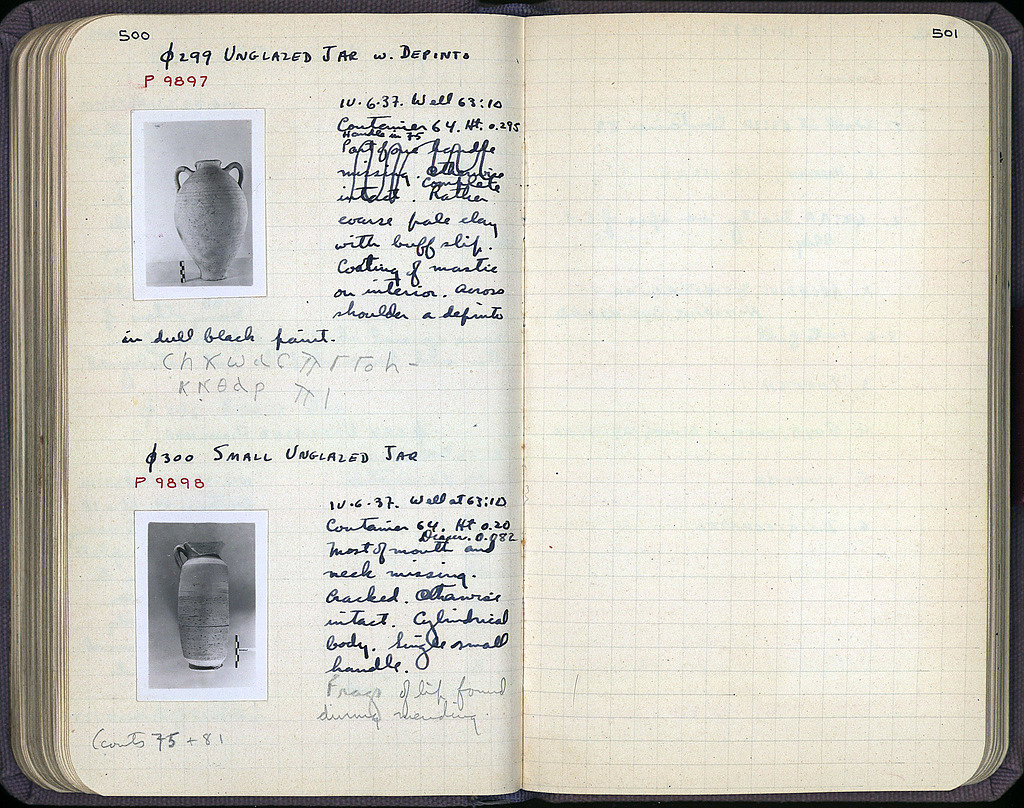 500
Φ299 UNGLAZED JAR W. DEPINTO
P 9897
IV.6.37. Well 63:10
Container 64. Ht. 0.295
Handle in 75
Part of one handle
missing. Otherwise
complete
intact. Rather
coarse pale clay
with buff slip.
Coating of mastic
on interior. Across
shoulder a depinto
in dull black paint.
Φ300 SMALL UNGLAZED JAR
P 9898
IV.6.37. Well at 63:10
Container 64. Ht 0.20
Diam. 0.082
Most of mouth and
neck missing.
Cracked. Otherwise
intact. Cylindrical
body. Single small
handle.
Frags of lip found
during mending.
(conts 75 + 81
501